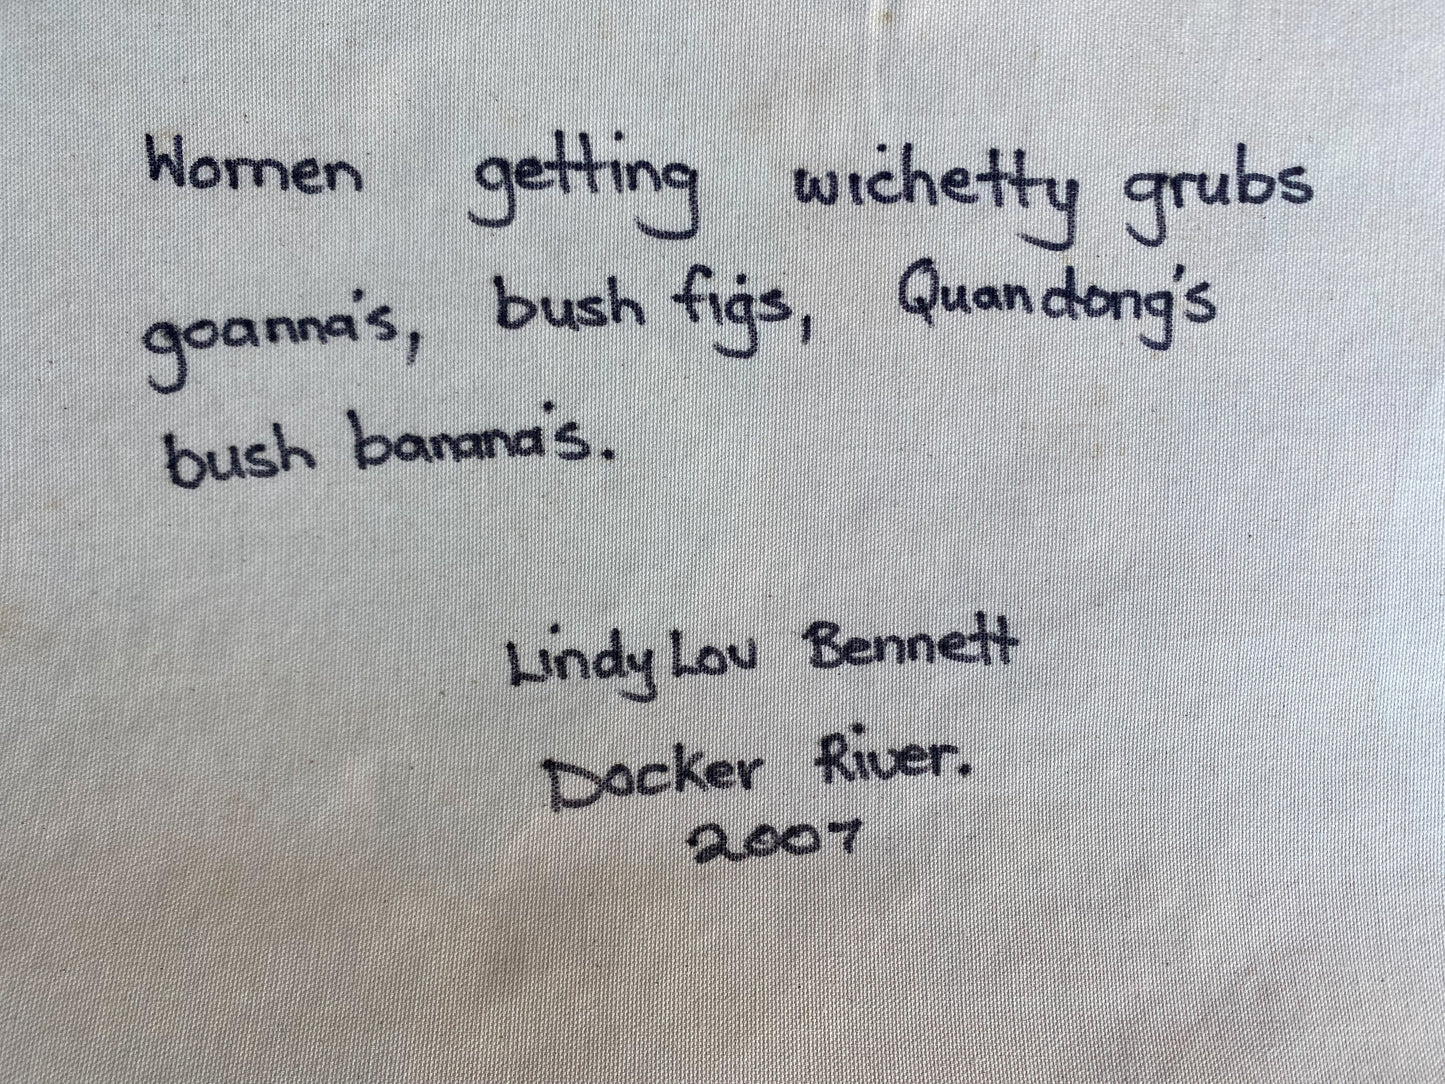 Women getting wichetty grubs
goanna's, bush figs, Quandong's
bush banana's.
Lindy Lou Bennett
Docker River.
2007